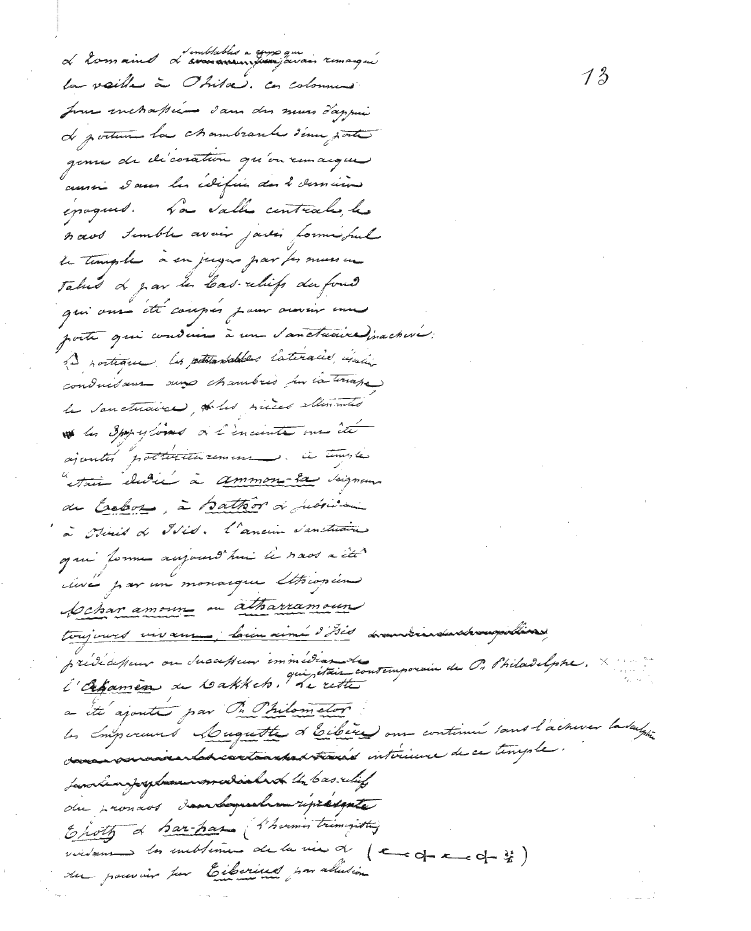 13
& Romains & semblables a ceux que j'avais remarqué
la veille à Philæ. ces colonnes
sont enchassées dans des murs d'appui
& portent la chambranle d'une porte
genre de décoration qu'on remarque
aussi dans les édifices des 2 dernières
époques. La salle centrale, le
naos semble avoir jadis formé seul
le temple à en juger par ses murs en
talus & par les bas-reliefs du fond
qui ont été coupés pour ouvrir une
porte qui conduit à un sanctuaire inachevé.
Le portique, les latéraux,
conduisant aux chambres sur la terrasse,
le sanctuaire, les pièces attenantes
les 3 pylônes & l'enceinte ont été
ajoutés postérieurement. ce temple
était dédié à ammon-ra seigneur
de Tebot, à hathor &
à Osiris & Isis. l'ancien sanctuaire
qui forme aujourd'hui le naos a été
élevé par un monarque Ethiopien
Atchar amoun ou atharramoun
toujours vivant, bien aimé d'Isis
prédécesseur ou successeur immédiat de
l'Erkamèn de Dakkeh. qui était contemporain de Pt. Philadelphe. Le reste
a été ajouté par Pt. Philometor
les Empereurs Auguste & Tibère ont continué sans l'achever la sculpture
intérieure de ce temple.
Un bas-relief
du pronaos représente
Thoth & har-hat (l'hermès trismégiste)
versant les emblêmes de la vie &
du pouvoir sur Tiberius par allusion